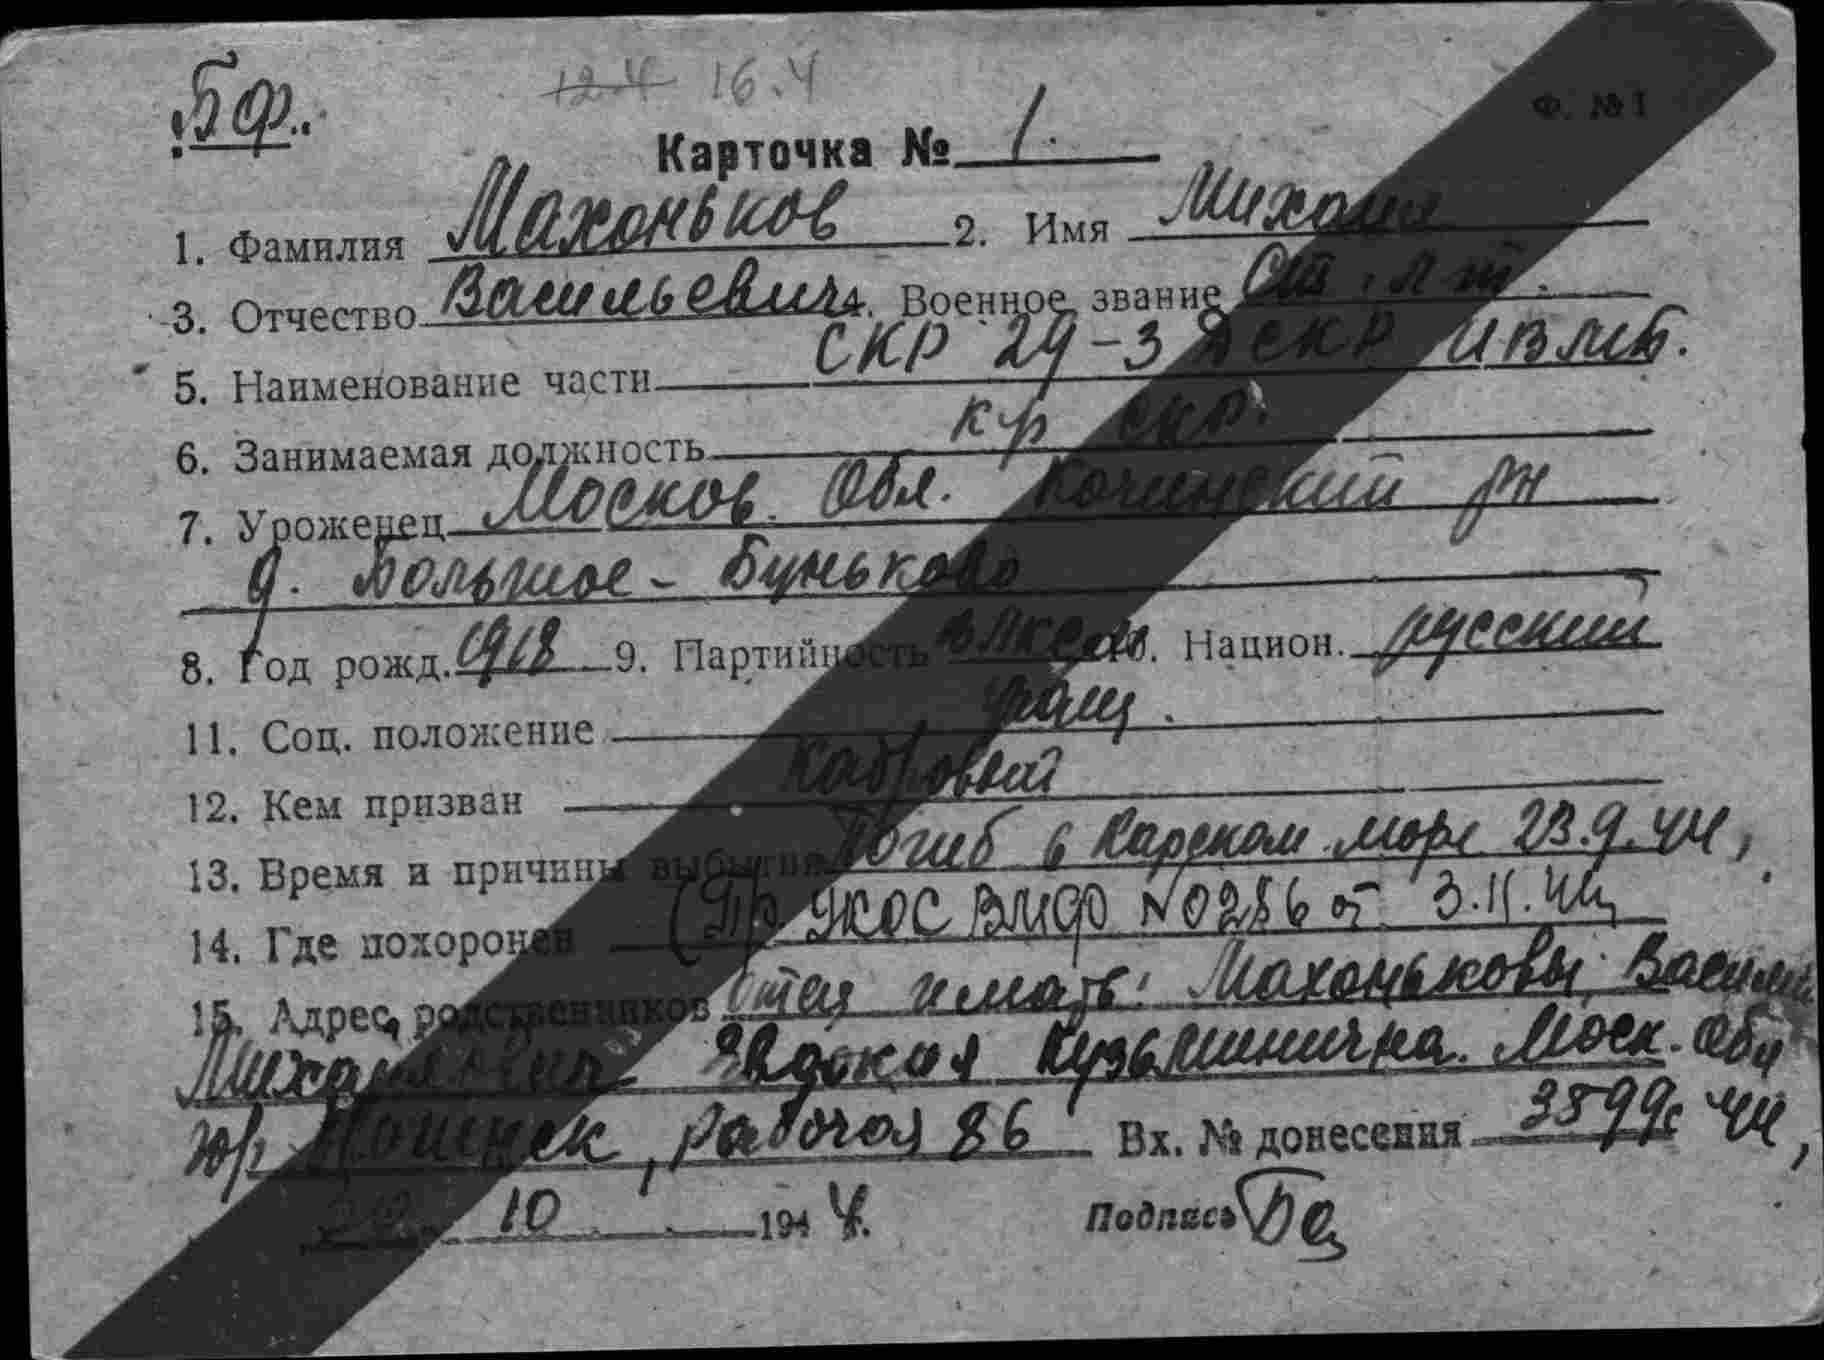 БФ. 12.4 16.4
Ф. № 1
Карточка № 1.
1. Фамилия Махоньков 2. Имя Михаил
3. Отчество Васильевич 4. Военное звание Ст. л-т.
5. Наименование части СКР 29-3 Д СКР ИВМБ.
6. Занимаемая должность к-р СКР.
7. Уроженец Москов. Обл. рн
д. Большое - Буньково
8. Год рожд. 1918 9. Партийность ВЛКСМ 10. Национ. русский
11. Соц. положение
12. Кем призван Кадровый
13. Время и причины выбытия Погиб в Карском море 23.9.44,
14. Где похоронен (Пр. УКОС ВМФ № 0286 от 3.11.44
15. Адрес родственников Отец и мать: Махоньковы, Василий
Михайлович Евдокия Кузьминична. Моск. Обл
гор Ногинск, рабочая 86 Вх. № донесения 3899с 44,
10 1944.
Подпись